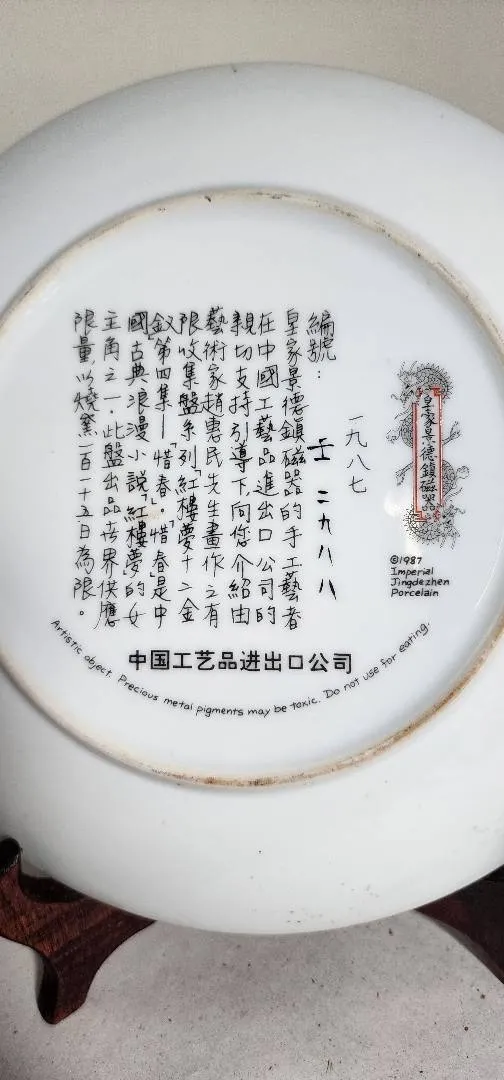 皇家景德鎮磁器
©1987
Imperial
Jingdezhen
Porcelain
一九八七
編號： 二九八八
皇家景德鎮磁器的手工藝者
在中國工藝品進出口公司的
親切支持引導下,向您介紹由
藝術家趙惠民先生畫作之有
限收集盤系列「紅樓夢十二金
釵」第四集—「惜春」。「惜春」是中
國古典浪漫小說「紅樓夢」的女
主角之一．此盤出品世界供應
限量以燒窯一百一十五日為限。
中国工艺品进出口公司
Artistic object. Precious metal pigments may be toxic. Do not use for eating.